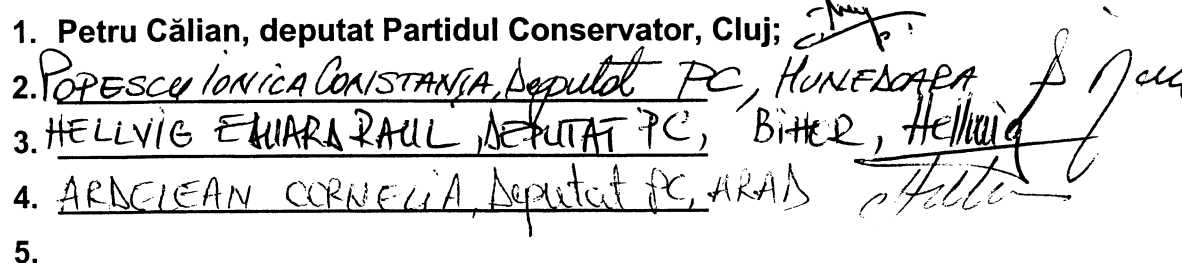 1. Petru Călian, deputat Partidul Conservator, Cluj;
2. POPESCU IONICA CONSTANȚA, Deputat PC, HUNEDOARA
3. HELLVIG EDUARD RAUL, DEPUTAT PC, BIHOR, Hellvig
4. ARDELEAN CORNELIA, Deputat PC, ARAD
5.